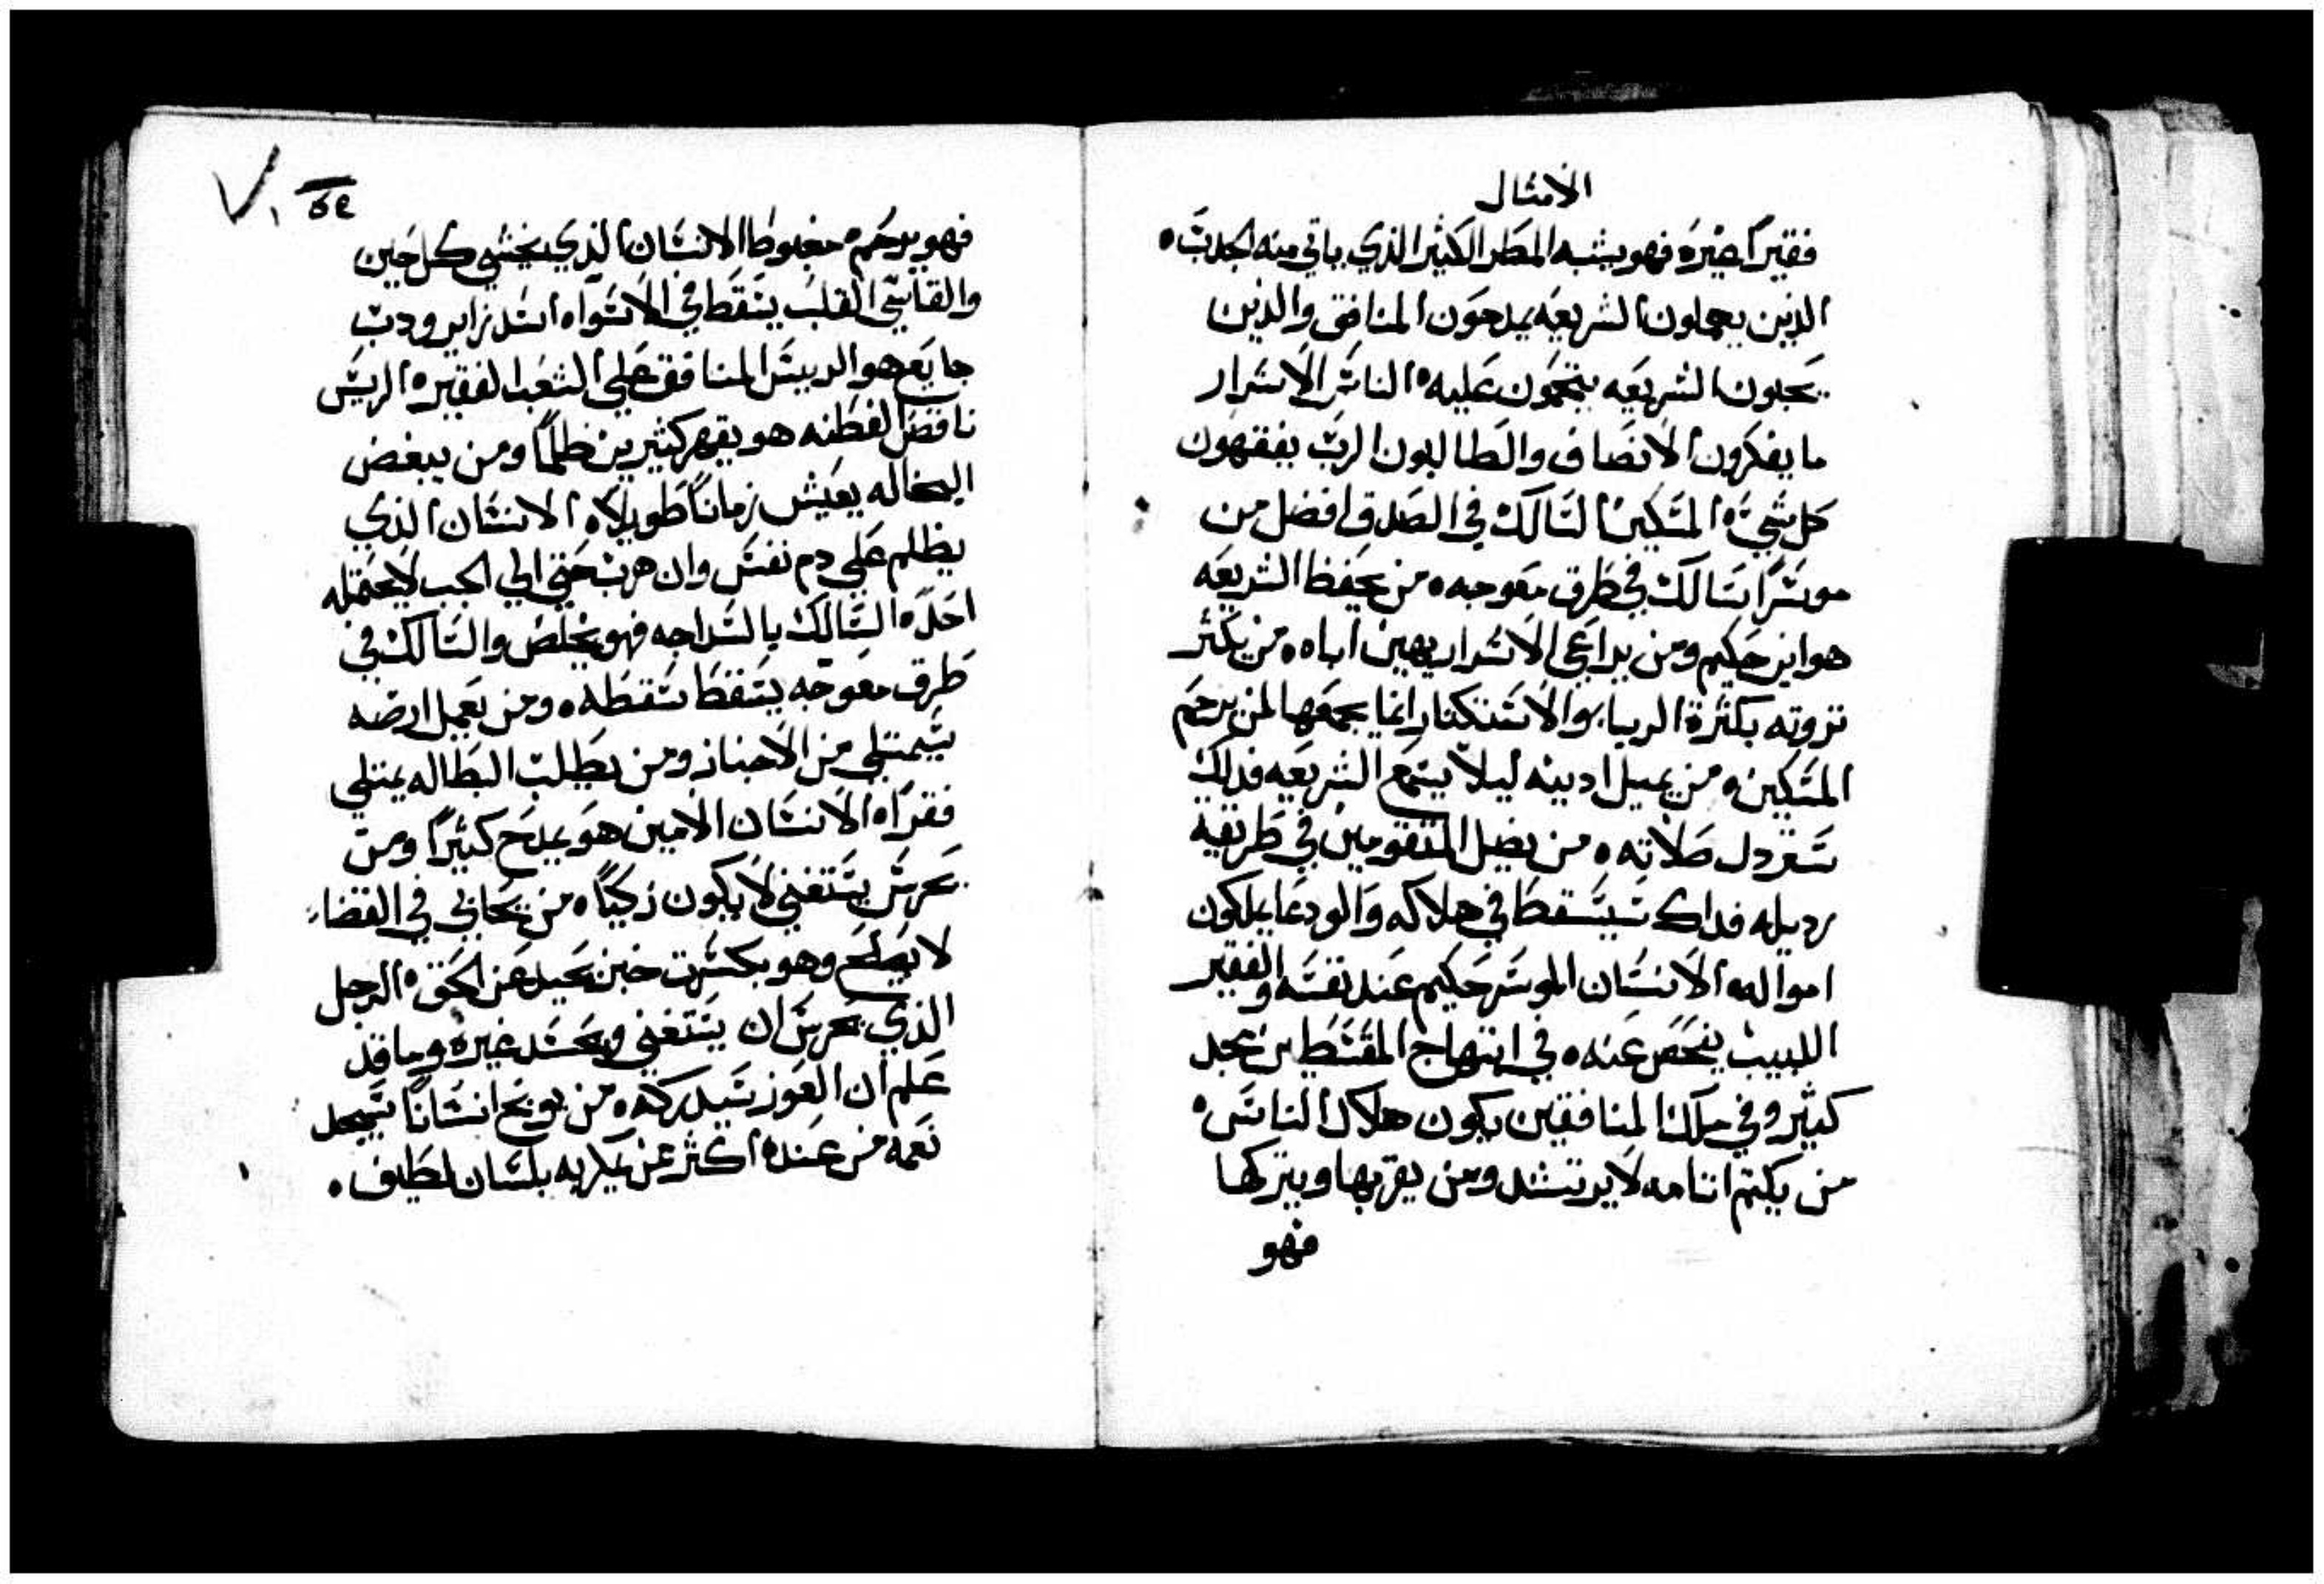 الامثال
فقيرًا غيره فهو يشبه المطر الكثير الذي ياتي منه الجدب ه
الذين يهملون الشريعه يمدحون المنافق والذين
يحبون الشريعه يتحمون عليه ه الناس الاسرار
ما يفكرون الانصاف والطالبون الرب يفقهون
كل شي ه المسكين السالك في الصدق افضل من
موسرًا سالك في طرق معوجه ه من يحفظ الشريعه
هو ابن حكيم ومن يراعي الاشرار يهين اباه ه من يكثر
تروته بكثرة الربا والاستنكار انما يجمعها لمن يرحم
المسكين ه من يميل ادينه ليلا يسمع الشريعه فدلك
سترذل صلاته ه من يضل المتقومين في طريقه
رديله فداك سيسقط في هلاكه والودعا يملكون
امواله ه الانسان الموسر حكيم عند نفسه والفقير
اللبيب يفحص عنه ه في ابتهاج المقسطين مجد
كثير وفي ملك المنافقين يكون هلاك الناس ه
من يكتم اتامه لا يرتشد ومن يقر بها ويتركها
فهو
فهو يرحم ه مغبوط الانسان الذي يخشي كل حين
والقاسي القلب يسقط في الاسواء ه اسد زاير ودب
جايع هو الرييس المنافق علي الشعب الفقير ه الريس
ناقص الفطنه هو يقهر كثيرين ظلمًا ومن يبغض
البخاله يعيش زمانًا طويلا ه الانسان الذي
يظلم علي دم نفس وان هرب حتي الي الجب لا يحتمله
احد ه السالك بالسداجه فهو يخلص والسالك في
طرق معوجه يسقط سقطه ه ومن يعمل ارضه
يتمتلي من الاخباز ومن يطلب البطاله يمتلي
فقرًا ه الانسان الامين هو يمدح كثيرًا ومن
يحرس يستغني لا يكون زكيًا ه من يحابي في القضاء
لا يصلح وهو بكسرت خبز يحيد عن الحق ه الرجل
الذي يحرس ان يستغني ويحسد غيره وما قد
علم ان العوز سيدركه ه من يوبخ انسانًا سيجد
نعمه من عنده اكثر عن يملا به بلسان لطيف ه